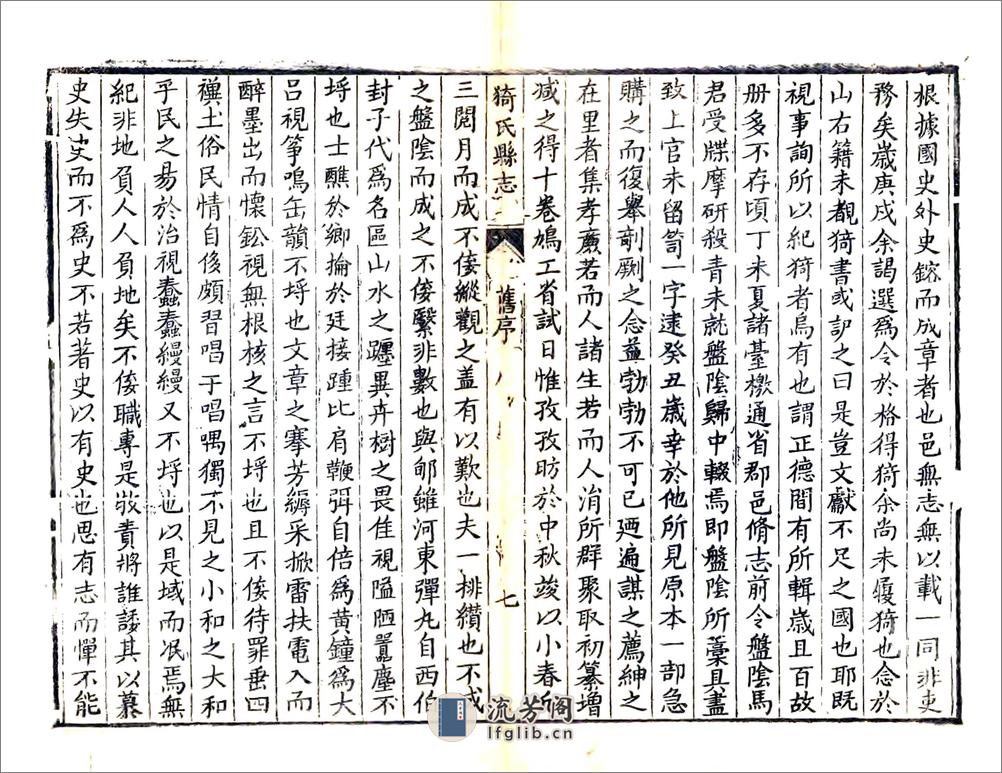 根據國史外史鎔而成章者也邑無志無以載一同非吏
務矣歲庚戌余謁選爲令於格得猗余尚未履猗也念於
山右籍未覩猗書或訛之曰是豈文獻不足之國也耶既
視事詢所以紀猗者烏有也謂正德間有所輯歲且百故
册多不存頃丁未夏諸臺檄通省郡邑脩志前令盤陰馬
君受牒摩研殺青未就盤陰歸中輟焉即盤陰所藁具盡
致上官未留笥一字逮癸丑歲幸於他所見原本一部急
購之而復舉剞劂之念益勃勃不可已迺遍謀之薦紳之
在里者集孝廉若而人諸生若而人㳙所群聚取初纂增
减之得十卷鳩工省試日惟孜孜昉於中秋竣以小春所
猗氏縣志
舊序
七
三閱月而成不佞縱觀之盖有以歎也夫一排纘也不成
之盤陰而成之不佞繄非數也與郇雖河東彈丸自西伯
封子代爲名區山水之躔異卉樹之畏佳視隘陋囂塵不
埒也士醮於鄉掄於廷接踵比肩鞭弭自倍爲黄鐘爲大
吕視箏鳴缶韻不埒也文章之搴芳縟采掀雷扶電入而
醉墨出而懷鈆視無根核之言不埒也且不佞待罪垂四
禩土俗民情自後頗習唱于唱喁獨不見之小和之大和
乎民之易於治視蠢蠢縵縵又不埒也以是域而泯焉無
紀非地負人人負地矣不佞職專是敢責將誰諉其以蓦
史失史而不爲史不若著史以有史也思有志而憚不能
流芳阁
lfglib.cn